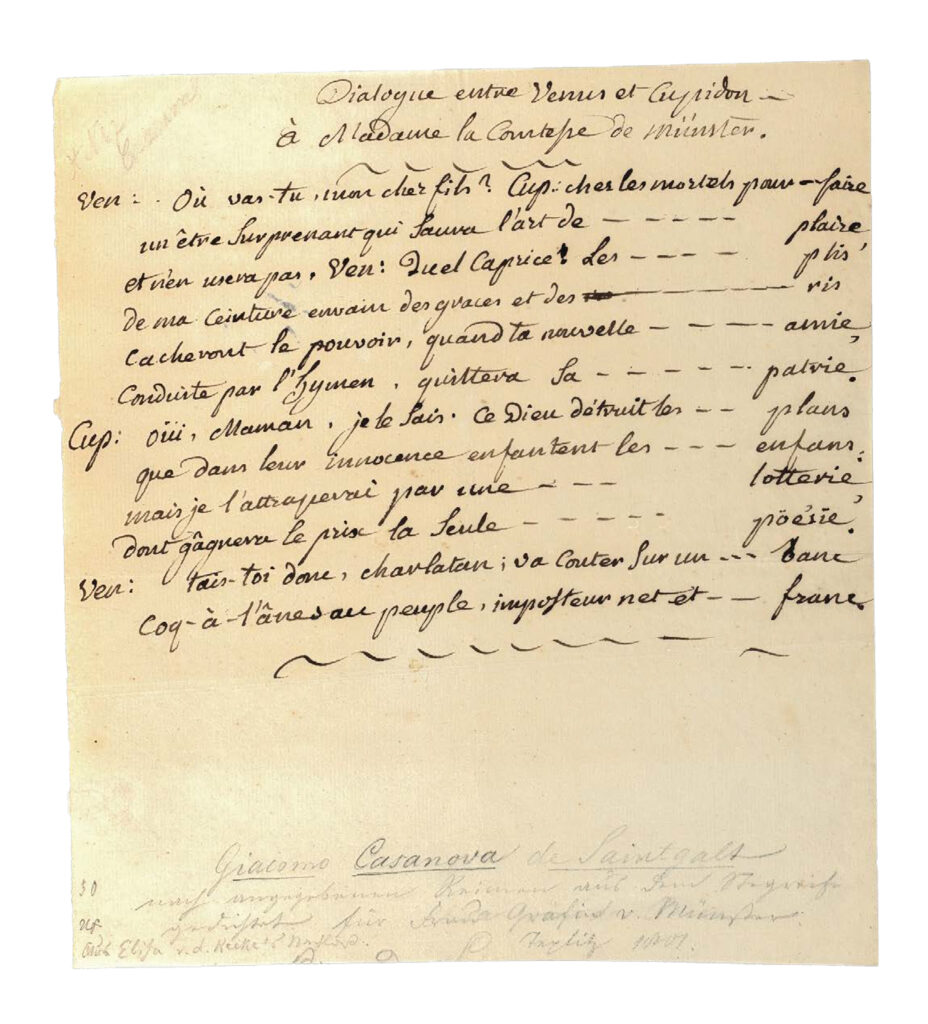 Dialogue entre Venus et Cupidon —
à Madame la Comtesse de Münster.
Ven: Où vas-tu, mon cher fils? Cup: cher les mortels pour — faire
un être surprenant qui saura l'art de — — — — — plaire,
et n'en usera pas. Ven: Quel Caprice! Les — — — — plis
de ma ceinture envain des graces et des — ris
cacheront le pouvoir, quand ta nouvelle — — — — amie,
Conduite par l'hymen, quittera sa — — — — — patrie.
Cup: Oüi, Maman, je le sais. Ce Dieu détruit les — — plans
que dans leur innocence enfantent les — — — enfans:
mais je l'attraperai par une — — — lotterie,
dont gâgnera le prix la seule — — — — — pöésie.
Ven: tais-toi donc, charlatan; va conter sur un --- banc
coq-à-l'ânes au peuple, imposteur net et — — franc.
Giacomo Casanova de Saintgalt
nach angegebenen Reimen aus dem Stegreife
gedichtet für Frau Gräfin v. Münster
Aus Elisa v. d. Recke's
Teplitz 1801.
50